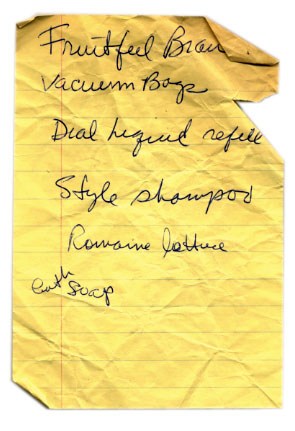 Fruitful Bran
Vacuum Bags
Dial liquid refill
Style shampoo
Romaine lettuce
bath
soap